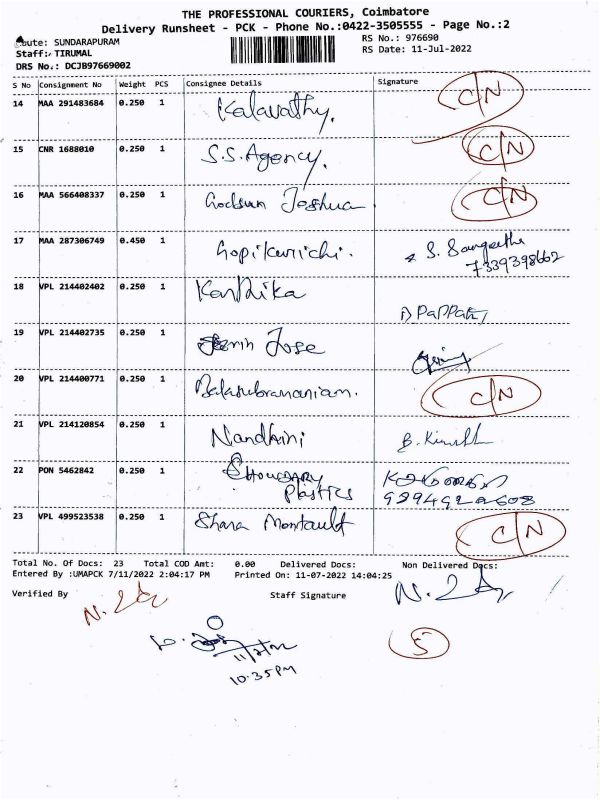 THE PROFESSIONAL COURIERS, Coimbatore
Delivery Runsheet - PCK - Phone No.:0422-3505555 - Page No.:2
Route: SUNDARAPURAM
RS No.: 976690
Staff: TIRUMAL
RS Date: 11-Jul-2022
DRS No.: DCJB97669002
S No Consignment No Weight PCS Consignee Details Signature
14 MAA 291483684 0.250 1 Kalavathy. C/N
15 CNR 1688010 0.250 1 S.S. Agency. C/N
16 MAA 566408337 0.250 1 Godsun Joshua C/N
17 MAA 287306749 0.450 1 Gopikurichi. S. Sangeetha
7339398662
18 VPL 214402402 0.250 1 Karthika
D PaPPaty
19 VPL 214402735 0.250 1 Jose
20 VPL 214400771 0.250 1 Balasubramaniam. C/N
21 VPL 214120854 0.250 1 Nandhini
22 PON 5462842 0.250 1 CHOUDARY
Plastics
23 VPL 499523538 0.250 1 Shara Montault C/N
Total No. Of Docs: 23 Total COD Amt: 0.00 Delivered Docs: Non Delivered Docs:
Entered By :UMAPCK 7/11/2022 2:04:17 PM Printed On: 11-07-2022 14:04:25
Verified By Staff Signature
5
10:35PM